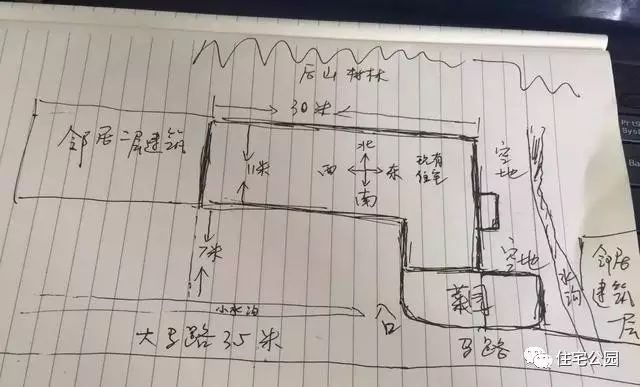 后山树林
30米
邻居二层建筑
11米
北
西 东
南
现有
住宅
空地
7米
空地
水沟
邻居
建筑
一层
菜园
小水沟
大马路35米
马路
住宅公园
PrtS
Sys
Ba